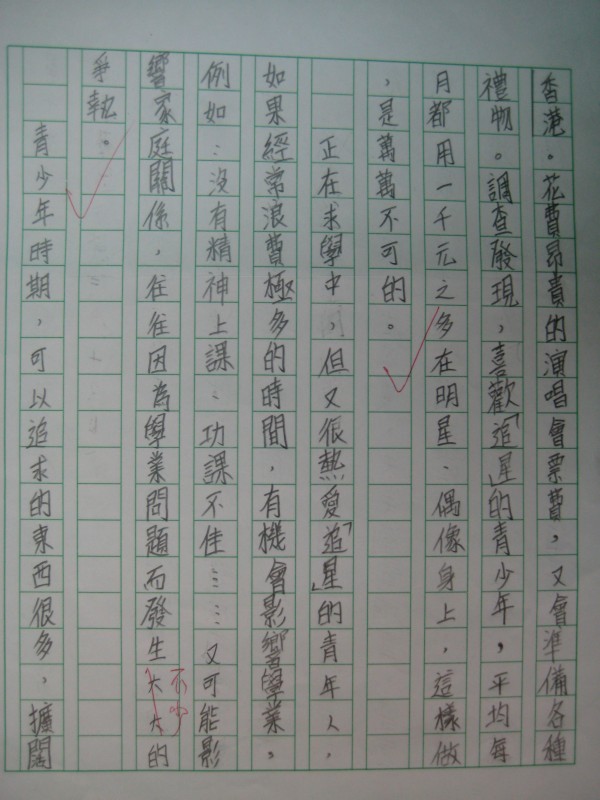 香港。花費昂貴的演唱會票費，又會準備各種
禮物。調查發現，喜歡「追星」的青少年，平均每
月都用一千元之多在明星、偶像身上，這樣做
，是萬萬不可的。
正在求學中，但又很熱愛「追星」的青年人，
如果經常浪費極多的時間，有機會影響學業，
例如：沒有精神上課、功課不佳……又可能影
響家庭關係，往往因為學業問題而發生大大的
不少
爭執。
青少年時期，可以追求的東西很多，擴闊